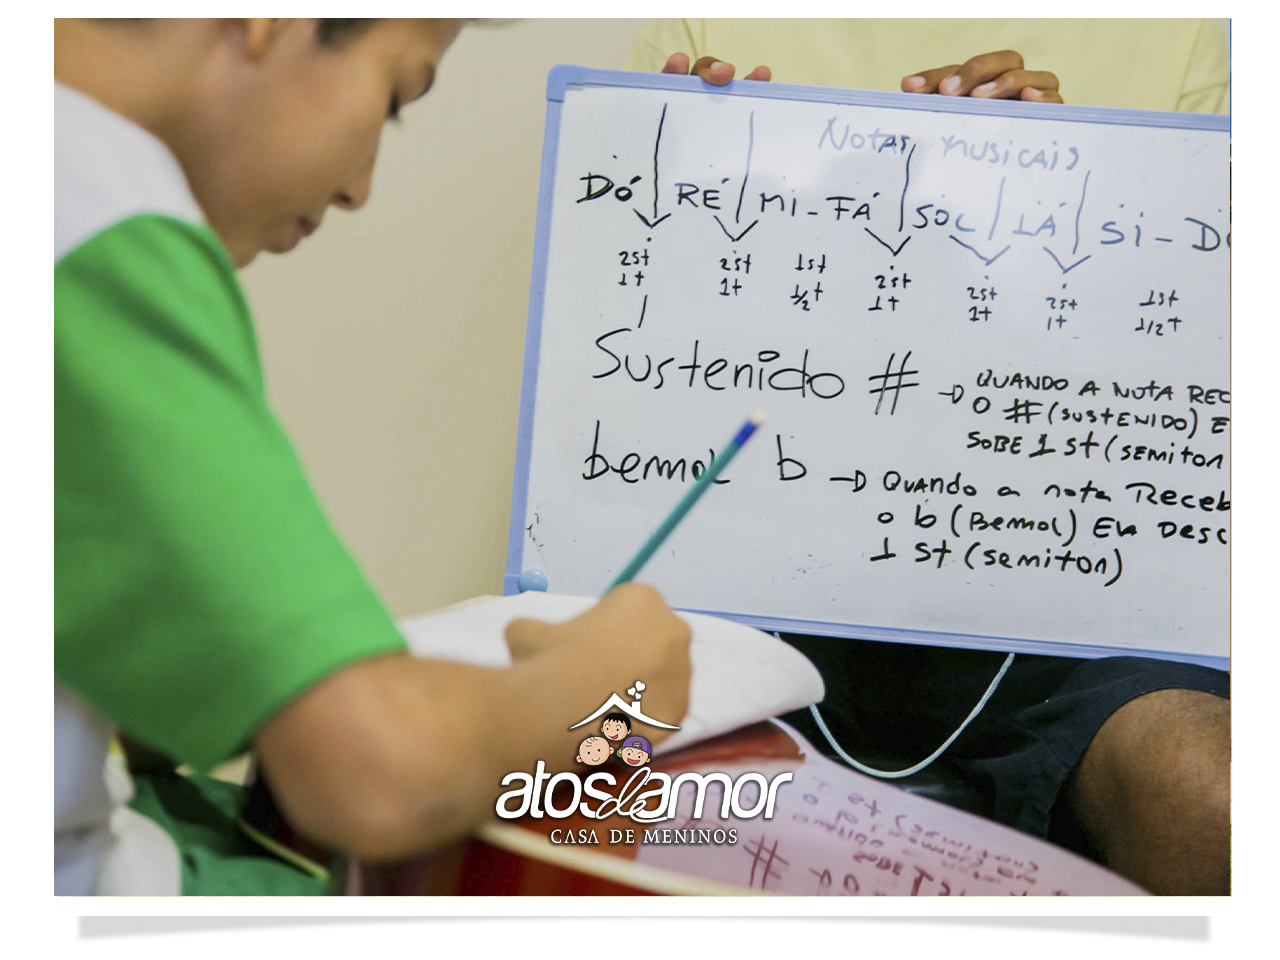 Notas musicais
DÓ RÉ MI - FÁ SOL LÁ SI - DÓ
2st 2st 1st 2st 2st 2st 1st
1t 1t 1/2t 1t 1t 1t 1/2t
Sustenido # → QUANDO A NOTA REC
O # (SUSTENIDO) E
SOBE 1 st (SEMITON
bemol b → QUANDO a nota Receb
o b (Bemol) ELA DESC
1 St (semiton)
atos de amor
CASA DE MENINOS